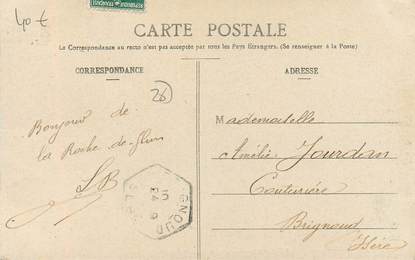 40 €
CARTE POSTALE
La Correspondance au recto n'est pas acceptée par tous les Pays Étrangers. (Se renseigner à la Poste)
CORRESPONDANCE
ADRESSE
26
Bonjour de
la Roche-de-Glun
LB
Mademoiselle
Amélie Jourdan
Couturière
Brignoud
Isère